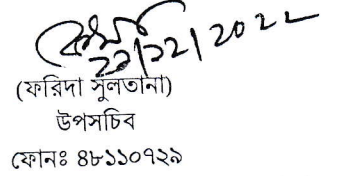 22/12/2022
(ফরিদা সুলতানা)
উপসচিব
ফোনঃ ৪৮১১০৭২৯